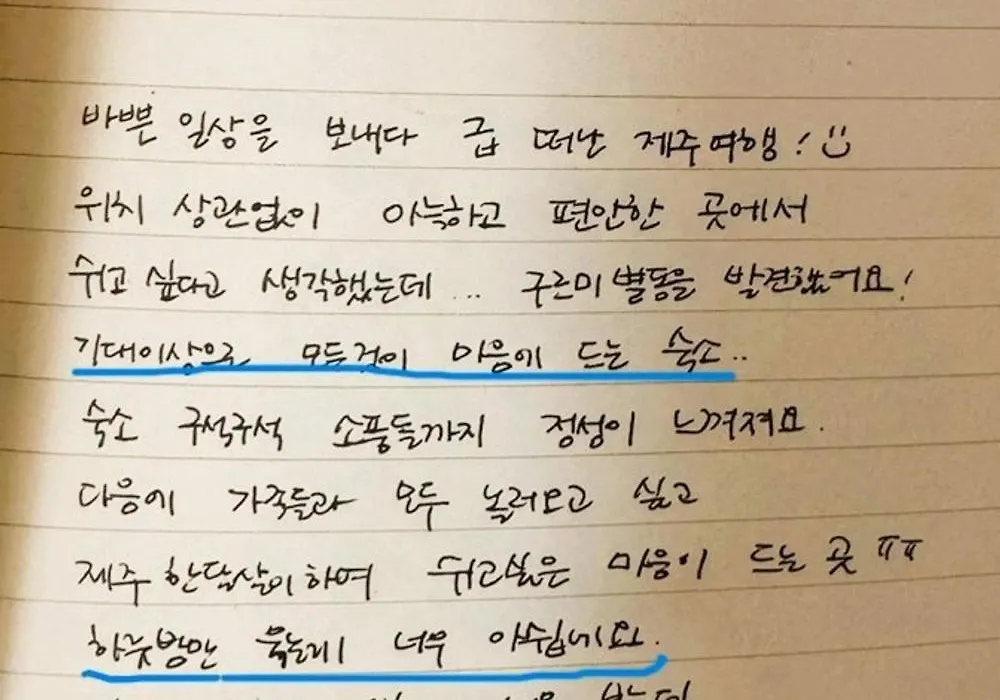 바쁜 일상을 보내다 급 떠난 제주여행! :)
위치 상관없이 아늑하고 편안한 곳에서
쉬고 싶다고 생각했는데... 구르미 별동을 발견했어요!
기대이상으로 모든것이 마음에 드는 숙소..
숙소 구석구석 소품들까지 정성이 느껴져요.
다음에 가족들과 모두 놀러오고 싶고
제주 한달살이하여 쉬고싶은 마음이 드는 곳 ㅠㅠ
하룻밤만 묵는게 너무 아쉽네요.